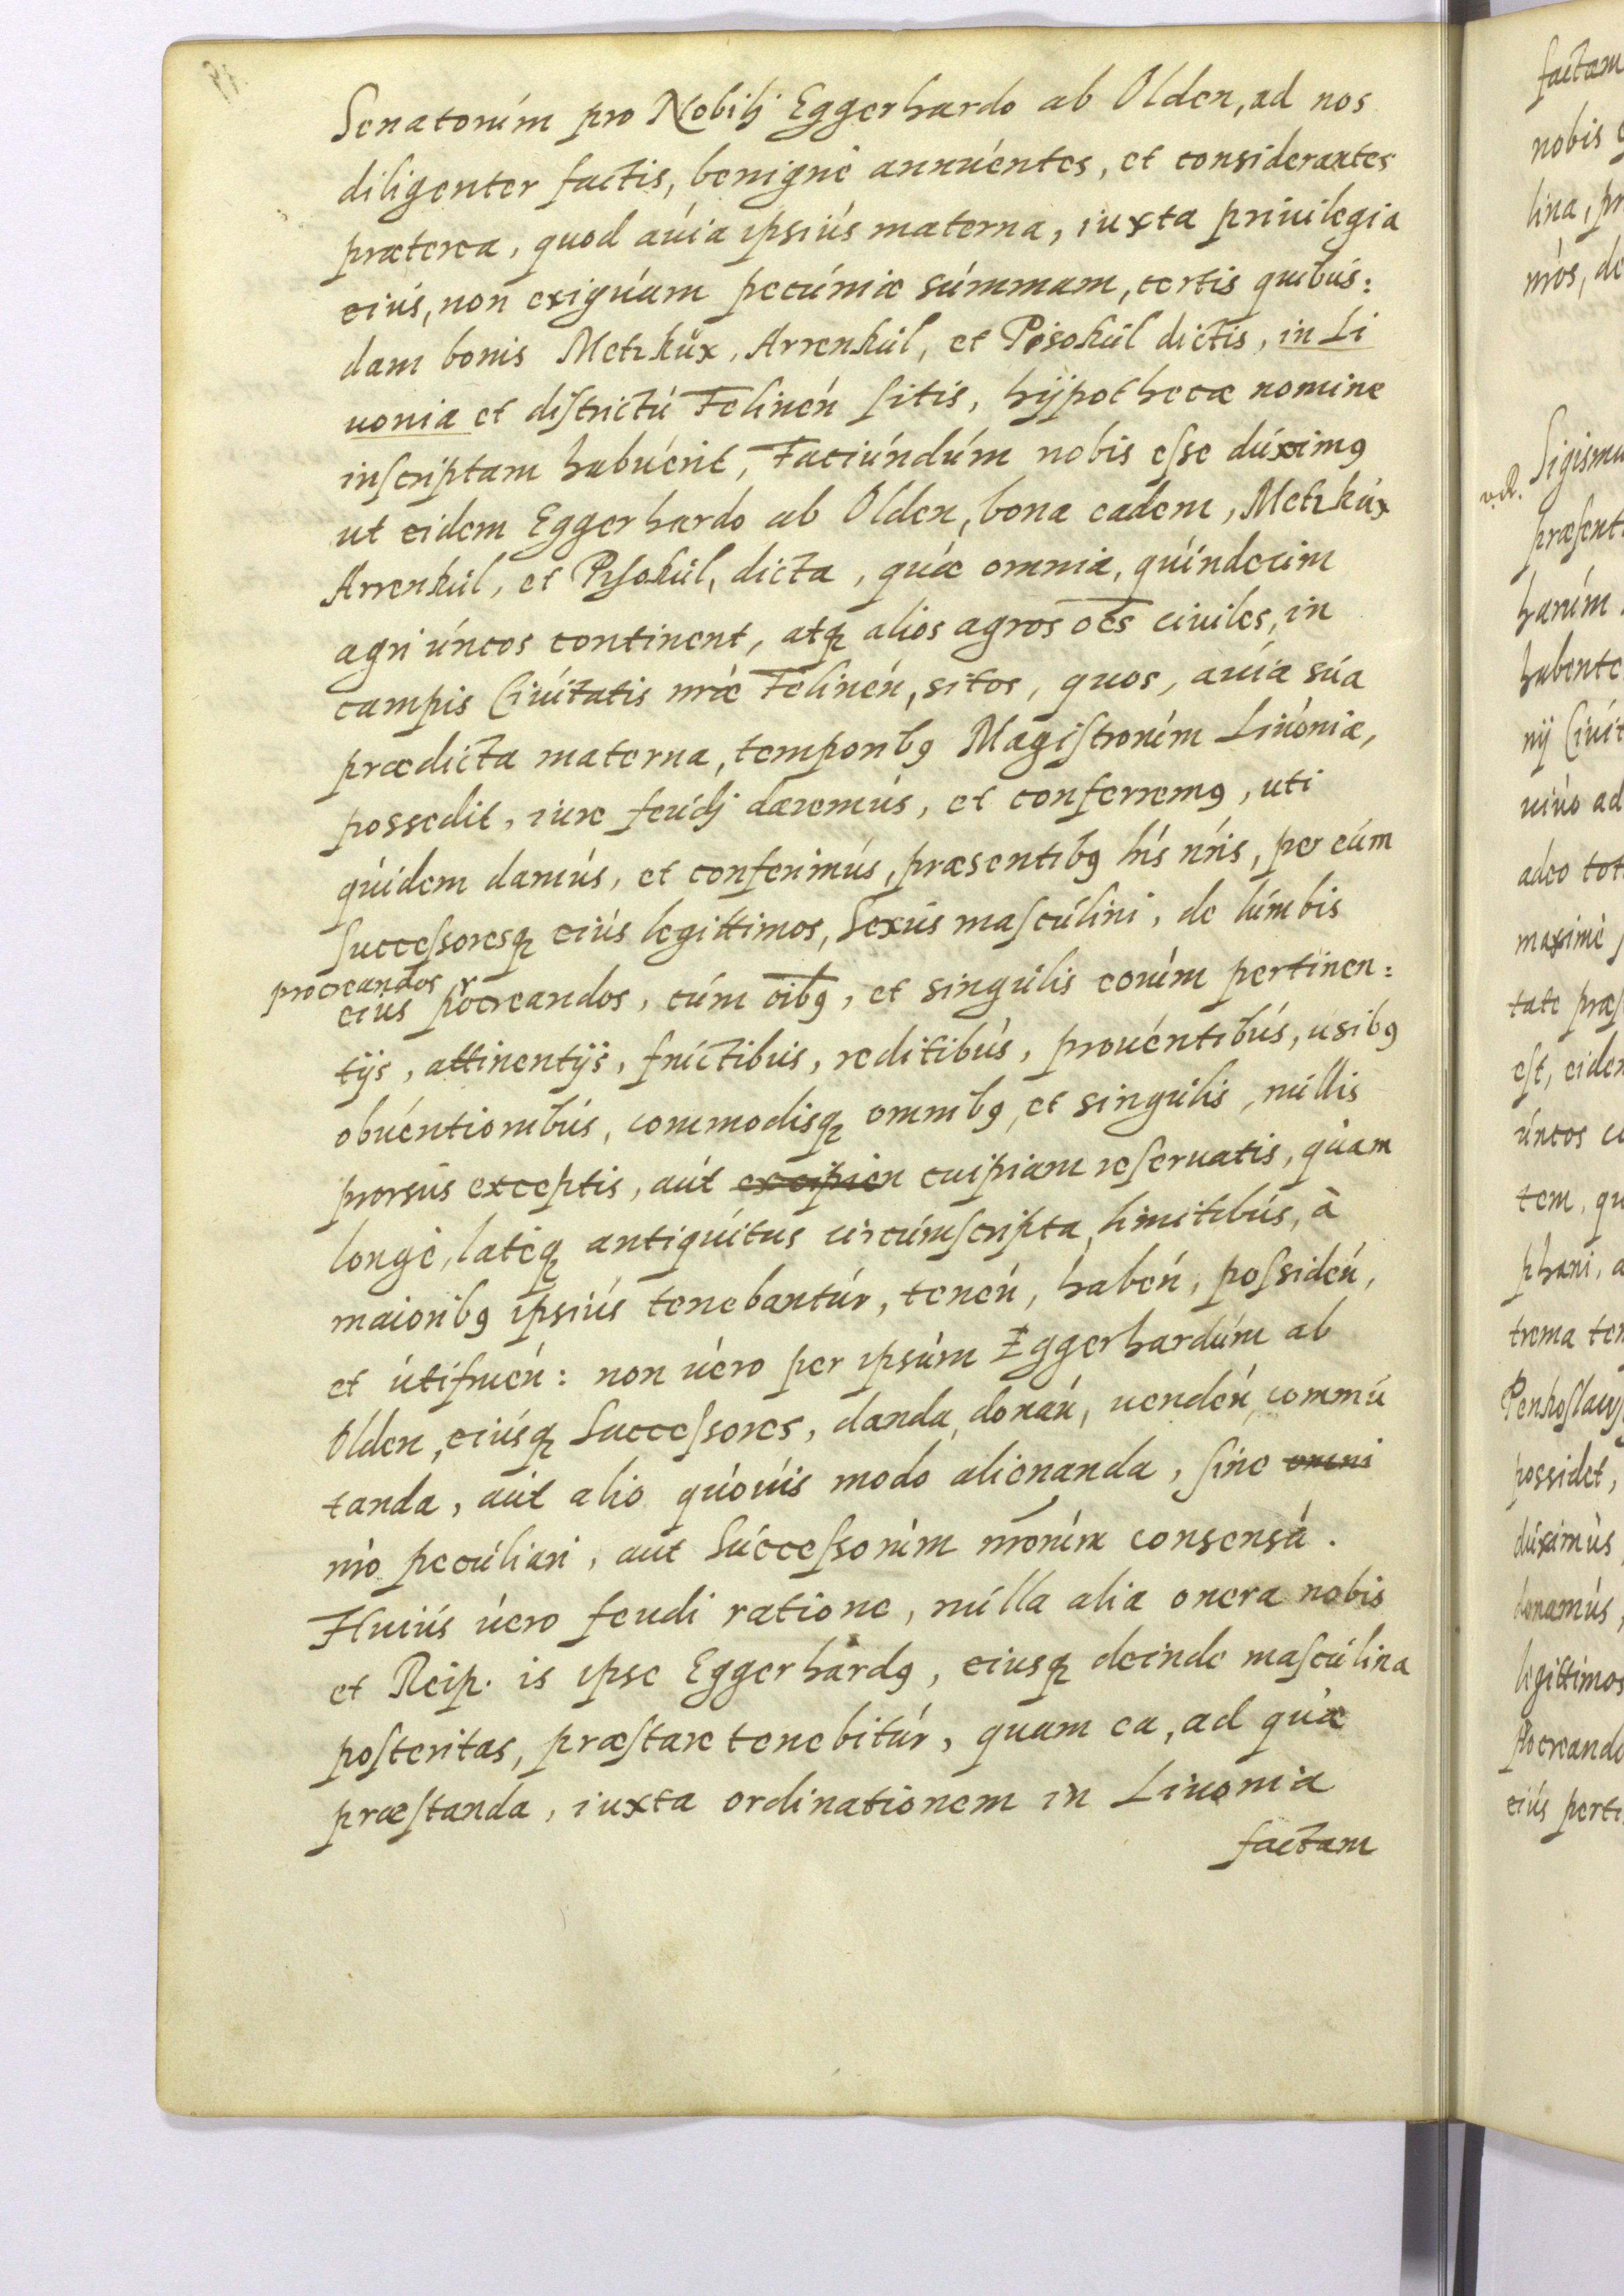 Senatorúm pro Nobilj Eggerhardo ab Olden, ad nos
diligenter factis, benignè annúentes, et considerantes
præterea, quod aúia ipsiús materna, iuxta priuilegia
eiús, non exigúam pecúniæ súmmam, certis quibús:
dam bonis Metzküx, Arrenkúl, et Pisokúl dictis, in Li
uonia et districtú Felineń sitis, hÿpothecæ nomine
inscriptam habúerit, Faciúndúm nobis esse dúximꝰ
ut eidem Eggerhardo ab Olden, bona eadem, Metzkúx
Arrenkúl, et Pisokúl, dicta, qúæ omnia, qúindecim
agri úncos continent, atqꝫ alios agros oẽs ciuiles, in
campis Ciúitatis nr̃æ Felineń, sitos, quos, aúia súa
prædicta materna, temporibꝰ Magistrorúm Liúoniæ,
possedit, iure feúdj daremús, et conferremꝰ, uti
qúidem damús, et conferimús, præsentibꝰ hís nr̃is, per eúm
Successoresqꝫ eiús legittimos, Sexús mascúlini, de lúmbis
procreandos
eiús procreandos, cúm oĩbꝰ, et singúlis eorúm pertinen:
tijs, attinentijs, frúctibús, reditibús, prouéntibús, usibꝰ
obúentionibús, commodisqꝫ omnibꝰ, et singúlis, núllis
prorsús exceptis, aút excipien cuipiam reseruatis, qúam
longè, latèqꝫ antiqúitus circúmscripta limitibús, à
maioribꝰ ipsiús tenebantúr, teneń, habeń, possideń,
et útifrueń: non úero per ipsúm Eggerhardúm ab
Olden, eiúsqꝫ Successores, danda, donań, uendeń, commú
tanda, aút alio qúoúis modo alienanda, sine omni
nr̃o pecúliari, aut Súccessorúm nr̃orúm consensú.
Huiús úero feudi ratione, núlla alia onera nobis
et Reip. is ipse Eggerhardꝰ, eiusqꝫ deinde mascúlina
posteritas, præstare tenebitúr, quam ea, ad qúæ
præstanda, iuxta ordinationem in Liuonia
factam
factam
nobis
lina, pr
nr̃os, de
Sigismu
præsent
harúm
habente
nÿ Ciúit
uiúo ad
adeo tot
maximè
tate præs
est, eiden
úncos co
tem, qu
phani, a
trema ten
possidet,
dúximús
donamús,
legittimos
procreando
eiús perti